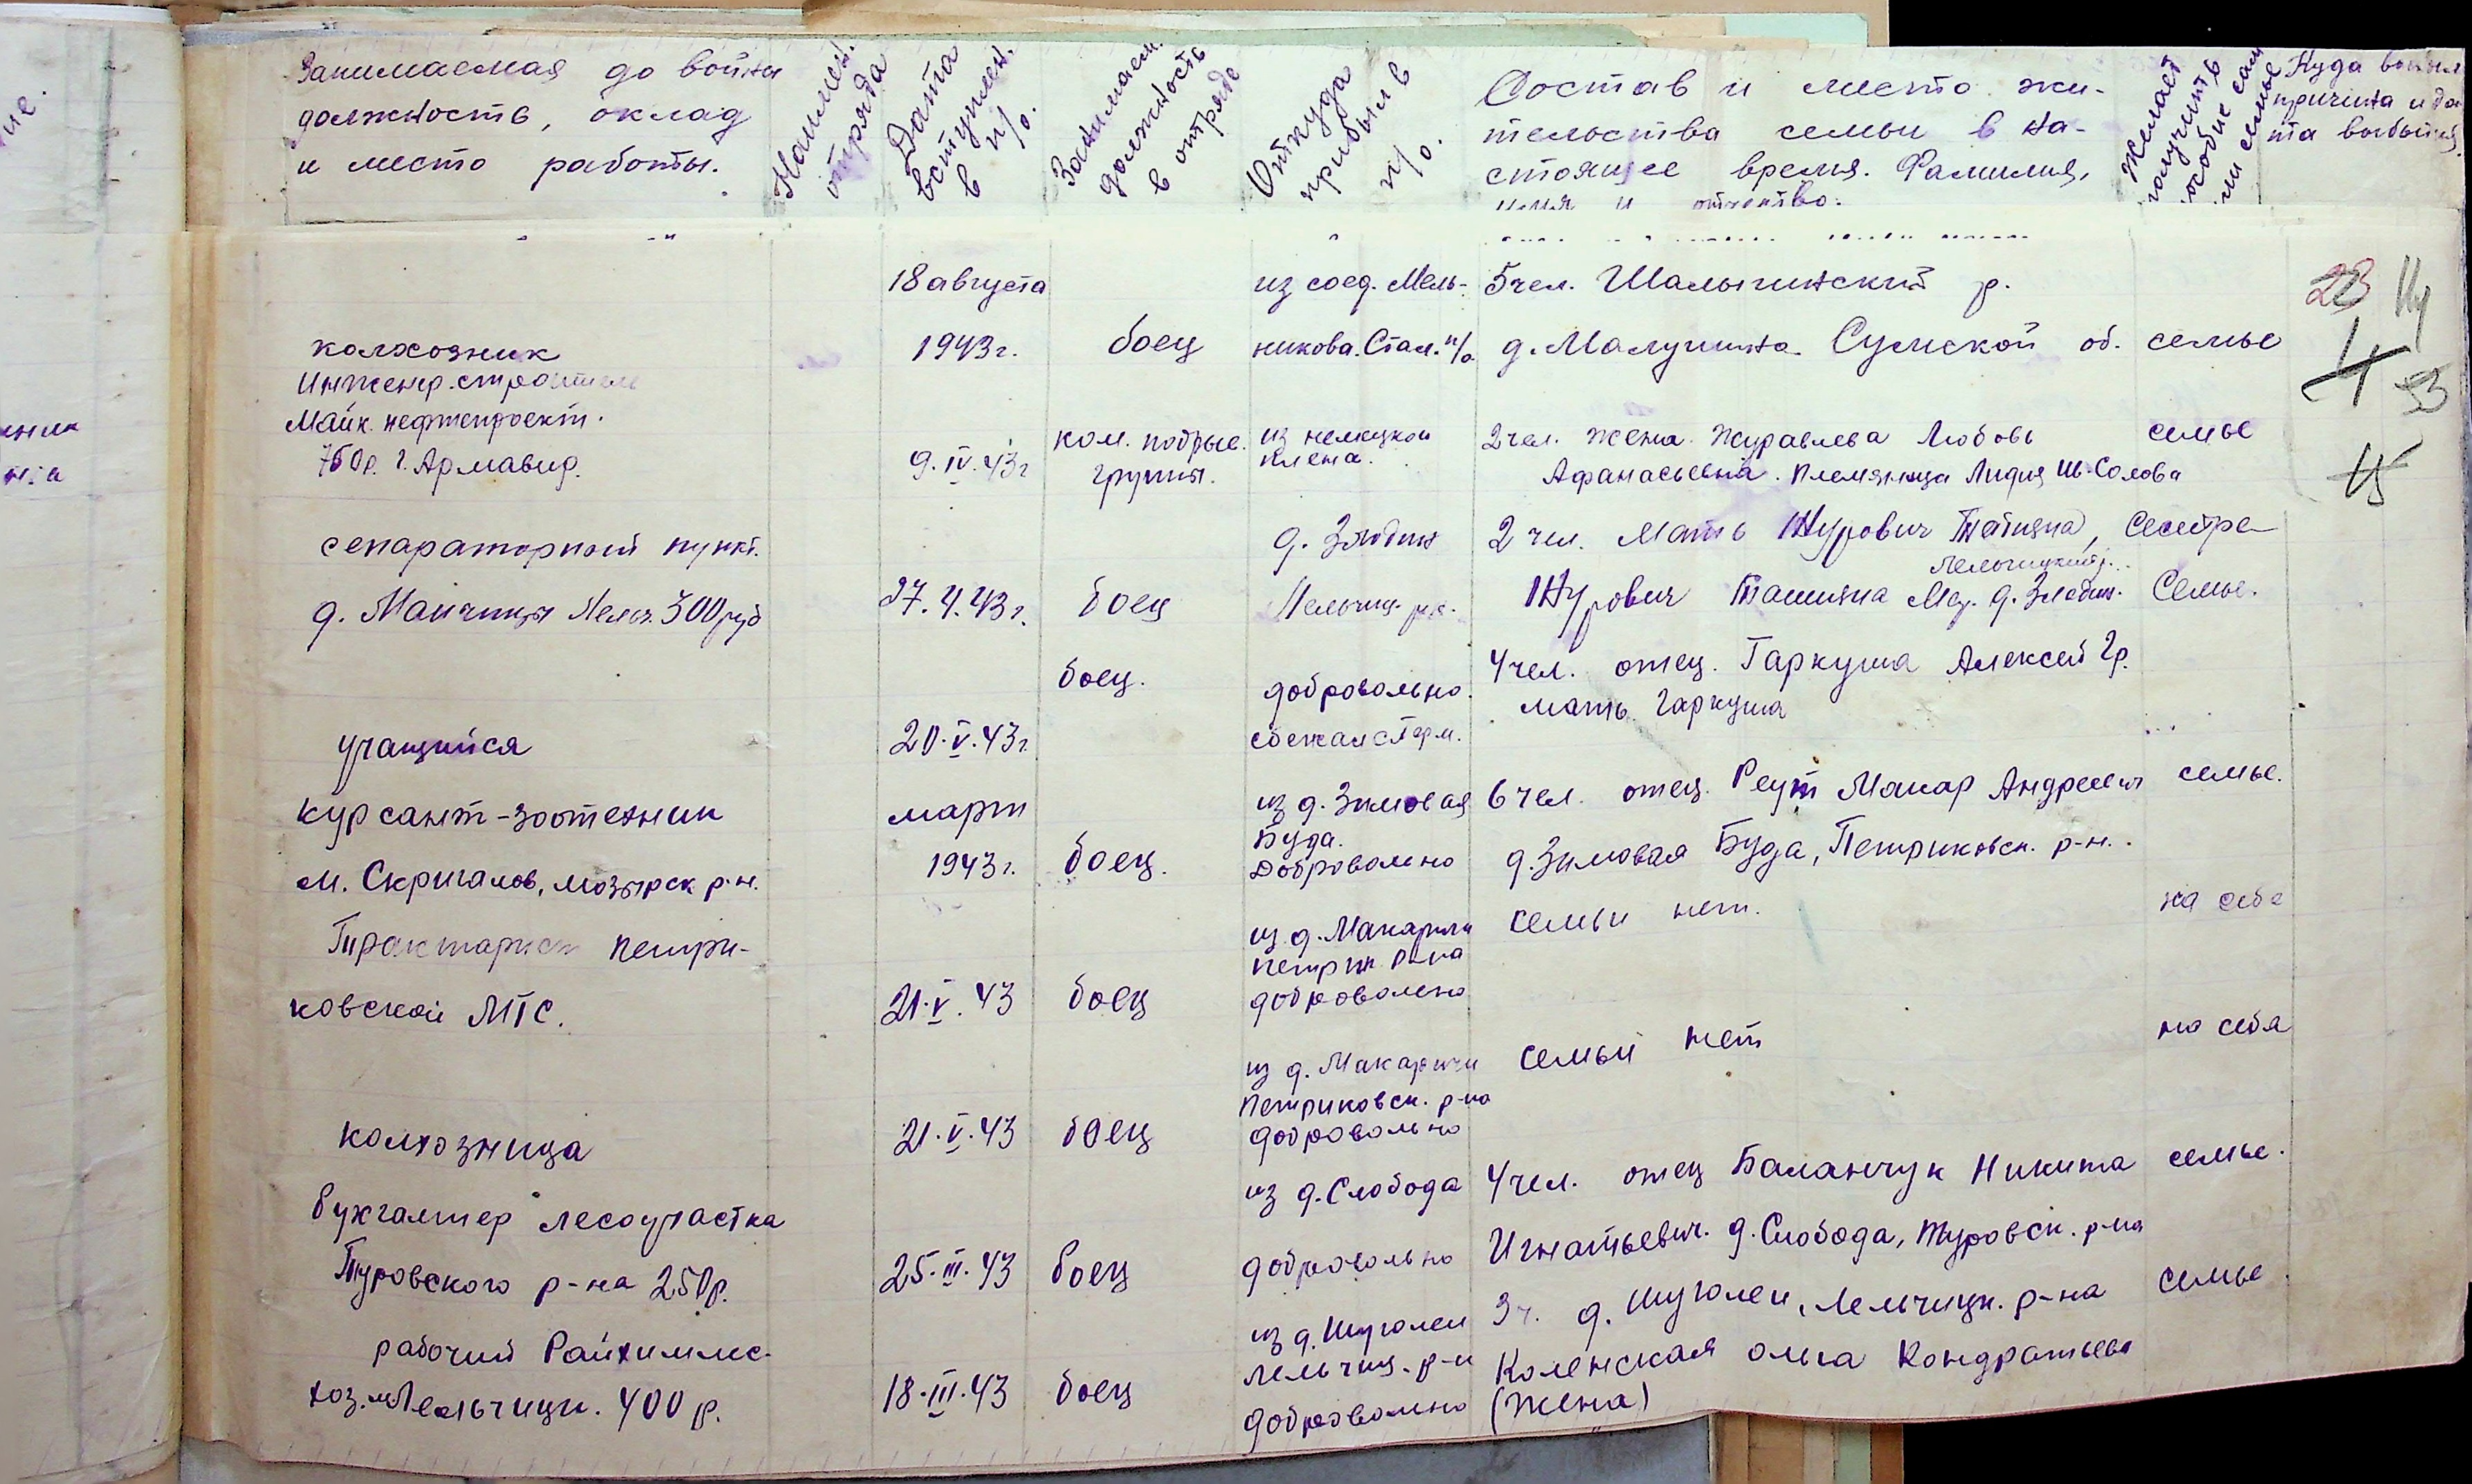 Занимаемая до войны
должность, оклад
и место работы.
Наимен.
отряда
Дата
вступлен.
в п/о.
Занимаем.
должность
в отряде
Откуда
прибыл в
п/о.
Состав и место жи-
тельства семьи в на-
стоящее время. Фамилия,
имя и отчество.
Желает
получить
пособие сам
или семье
Куда выбыл
причина и да
та выбытия.
18 августа
из соед. Мель-
5 чел. Шалыгинский р.
23
колхозник
1943 г.
боец
никова. Стал. п/о
д. Малушина Сумской об.
семье
4
53
Инженер. строитель
Майк. нефтепроект.
750 р. г. Армавир.
9.IV.43 г
ком. подрыв.
группы.
из немецкой
плена.
2 чел. жена Журавлева Любовь
семье
Афанасьевна. племянница Лидия
15
сепараторный пункт.
2 чел. Мать Журович Татьяна, Сестра
д. 300 руб
27.4.43 г.
боец
Лельчиц. рн.
Журович
Лельчицкий р.
Семье.
боец.
добровольно.
сбежал с Герм.
4 чел. отец. Гаркуша Алексей Гр.
мать Гаркуша
учащийся
20.V.43 г.
курсант-зоотехник
март
из д. Зимовая
Буда.
6 чел. отец. Реут Макар Андреевич
семье.
м. Скригалов, мозырск р-н.
1943 г.
боец.
Добровольно
д. Зимовая Буда, Петриковск. р-н.
Трактарист петри-
из д. Макаричи
петрик. р-на
семьи нет.
на себя
ковской МТС.
21.V.43
боец
добровольно
из д. Макаричи
Петриковск. р-на
семьи нет
на себя
колхозница
21.V.43
боец
добровольно
бухгалтер лесоучастка
из д. Слобода
4 чел. отец Баланчук Никита
семье.
Туровского р-на 250 р.
25.III.43
боец
добровольно
Игнатьевич. д. Слобода, Туровск. р-на
рабочий Райхимлес-
из д. Шуголеи
лельчиц. р-н
3 ч. д. Шуголеи, лельчицк. р-на
семье
хоз. м. Лельчицы. 400 р.
18.III.43
боец
добровольно
Коленская ольга Кондратьева
(жена)